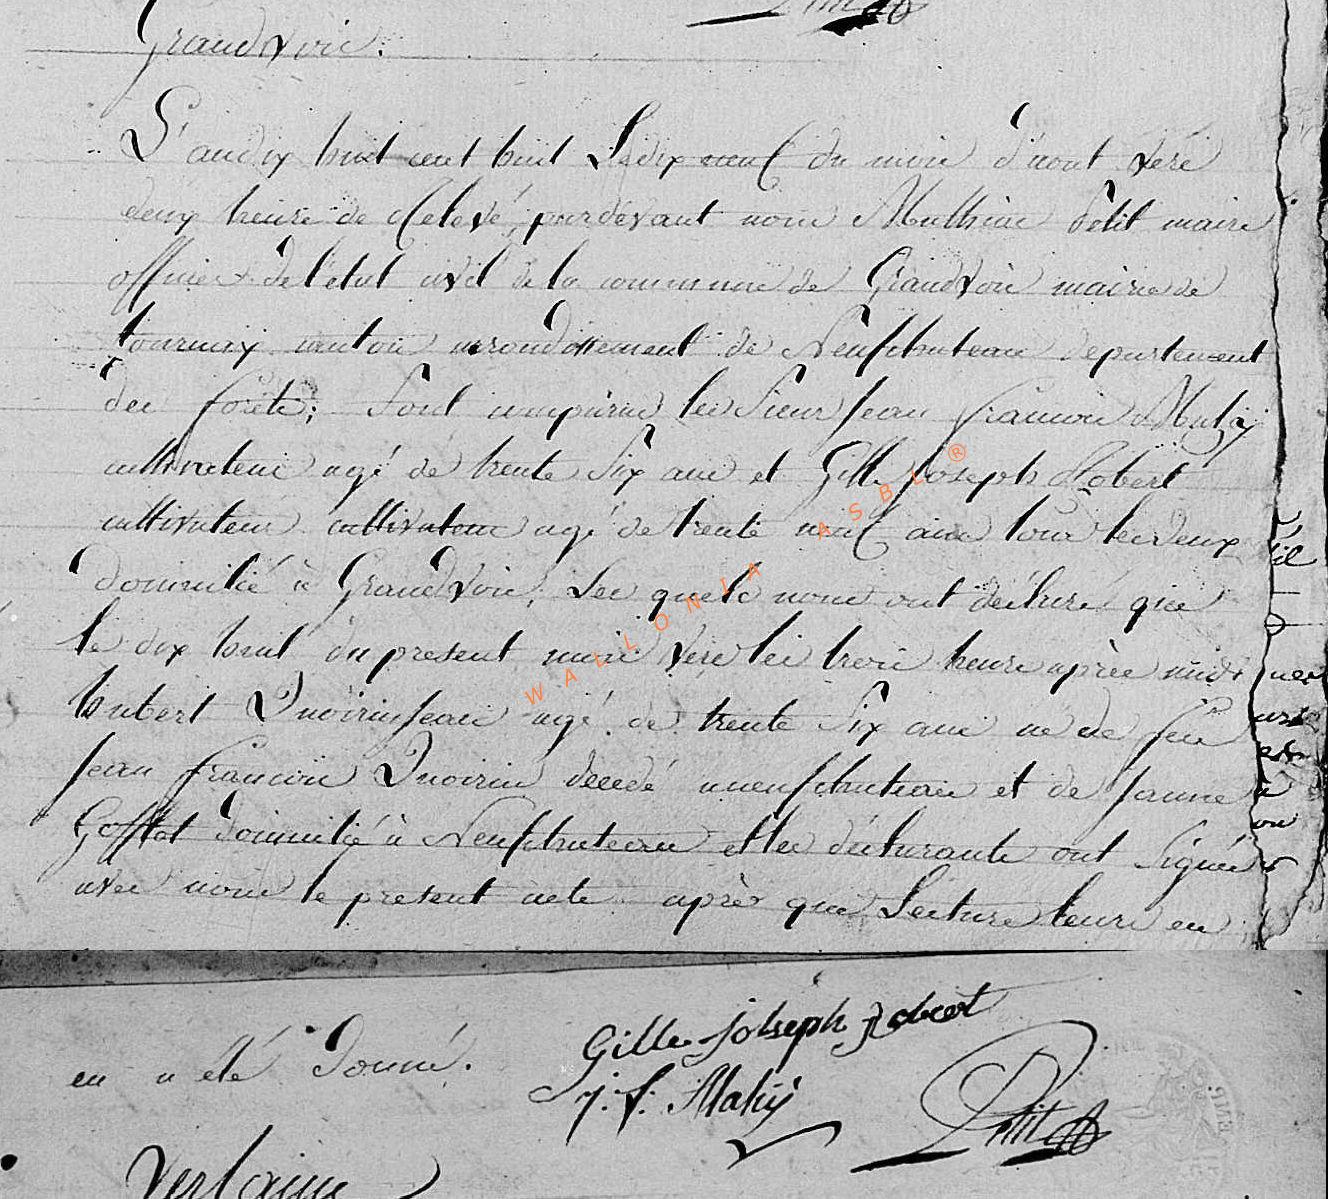 Grandvoir.
L'an dix huit cent huit Le dix neuf du mois d'aout vers
deux heure de Relevé, pardevant nous Mathias Petit maire
officier de l'etat civil de la commune de Grandvoir mairie de
tournay canton arrondissement de Neufchateau departement
des forêts; Sont comparus les Sieur Jean francois Mahÿ
cultivateur agé de trente Six ans et Gille Joseph Robert
cultivateur cultivateur agé de trente neuf ans tous les deux
domicilié à Grandvoir, Les quels nous ont déclaré que
le dix huit du present mois vers les trois heure après midi
hubert Quoirin jean agé de trente Six ans né de feu
Jean francois Quoirin décedé a neufchateau et de Janne
Goffrot domicilié à Neufchateau et les déclarants ont Signés
avec nous le present acte après que Lecture leurs en
en a été Donné.
Gille Joseph Robert
J. f. Mahÿ
Petit
Verlaine
WALLONIA ASBL ®